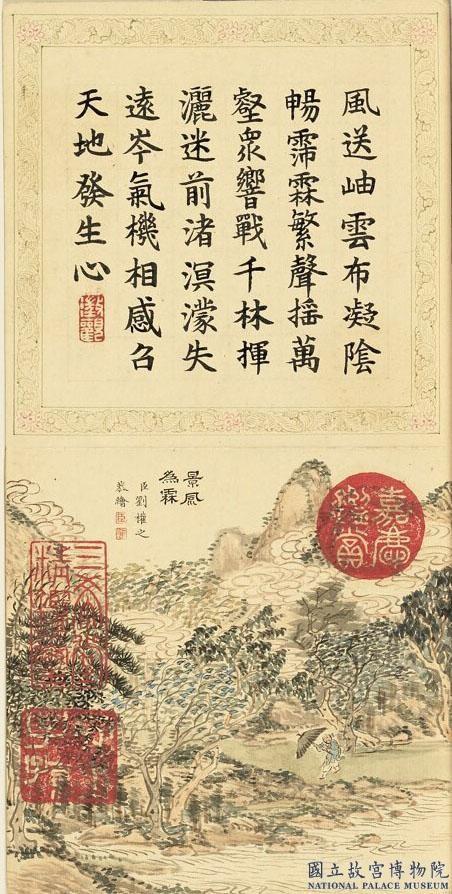 風送岫雲布凝陰
暢霈霖繁聲揺萬
壑眾響戰千林揮
灑迷前渚溟濛失
遠岑氣機相感召
天地發生心
景風
為霖
臣劉權之
恭繪
嘉慶
國立故宮博物院
NATIONAL PALACE MUSEUM